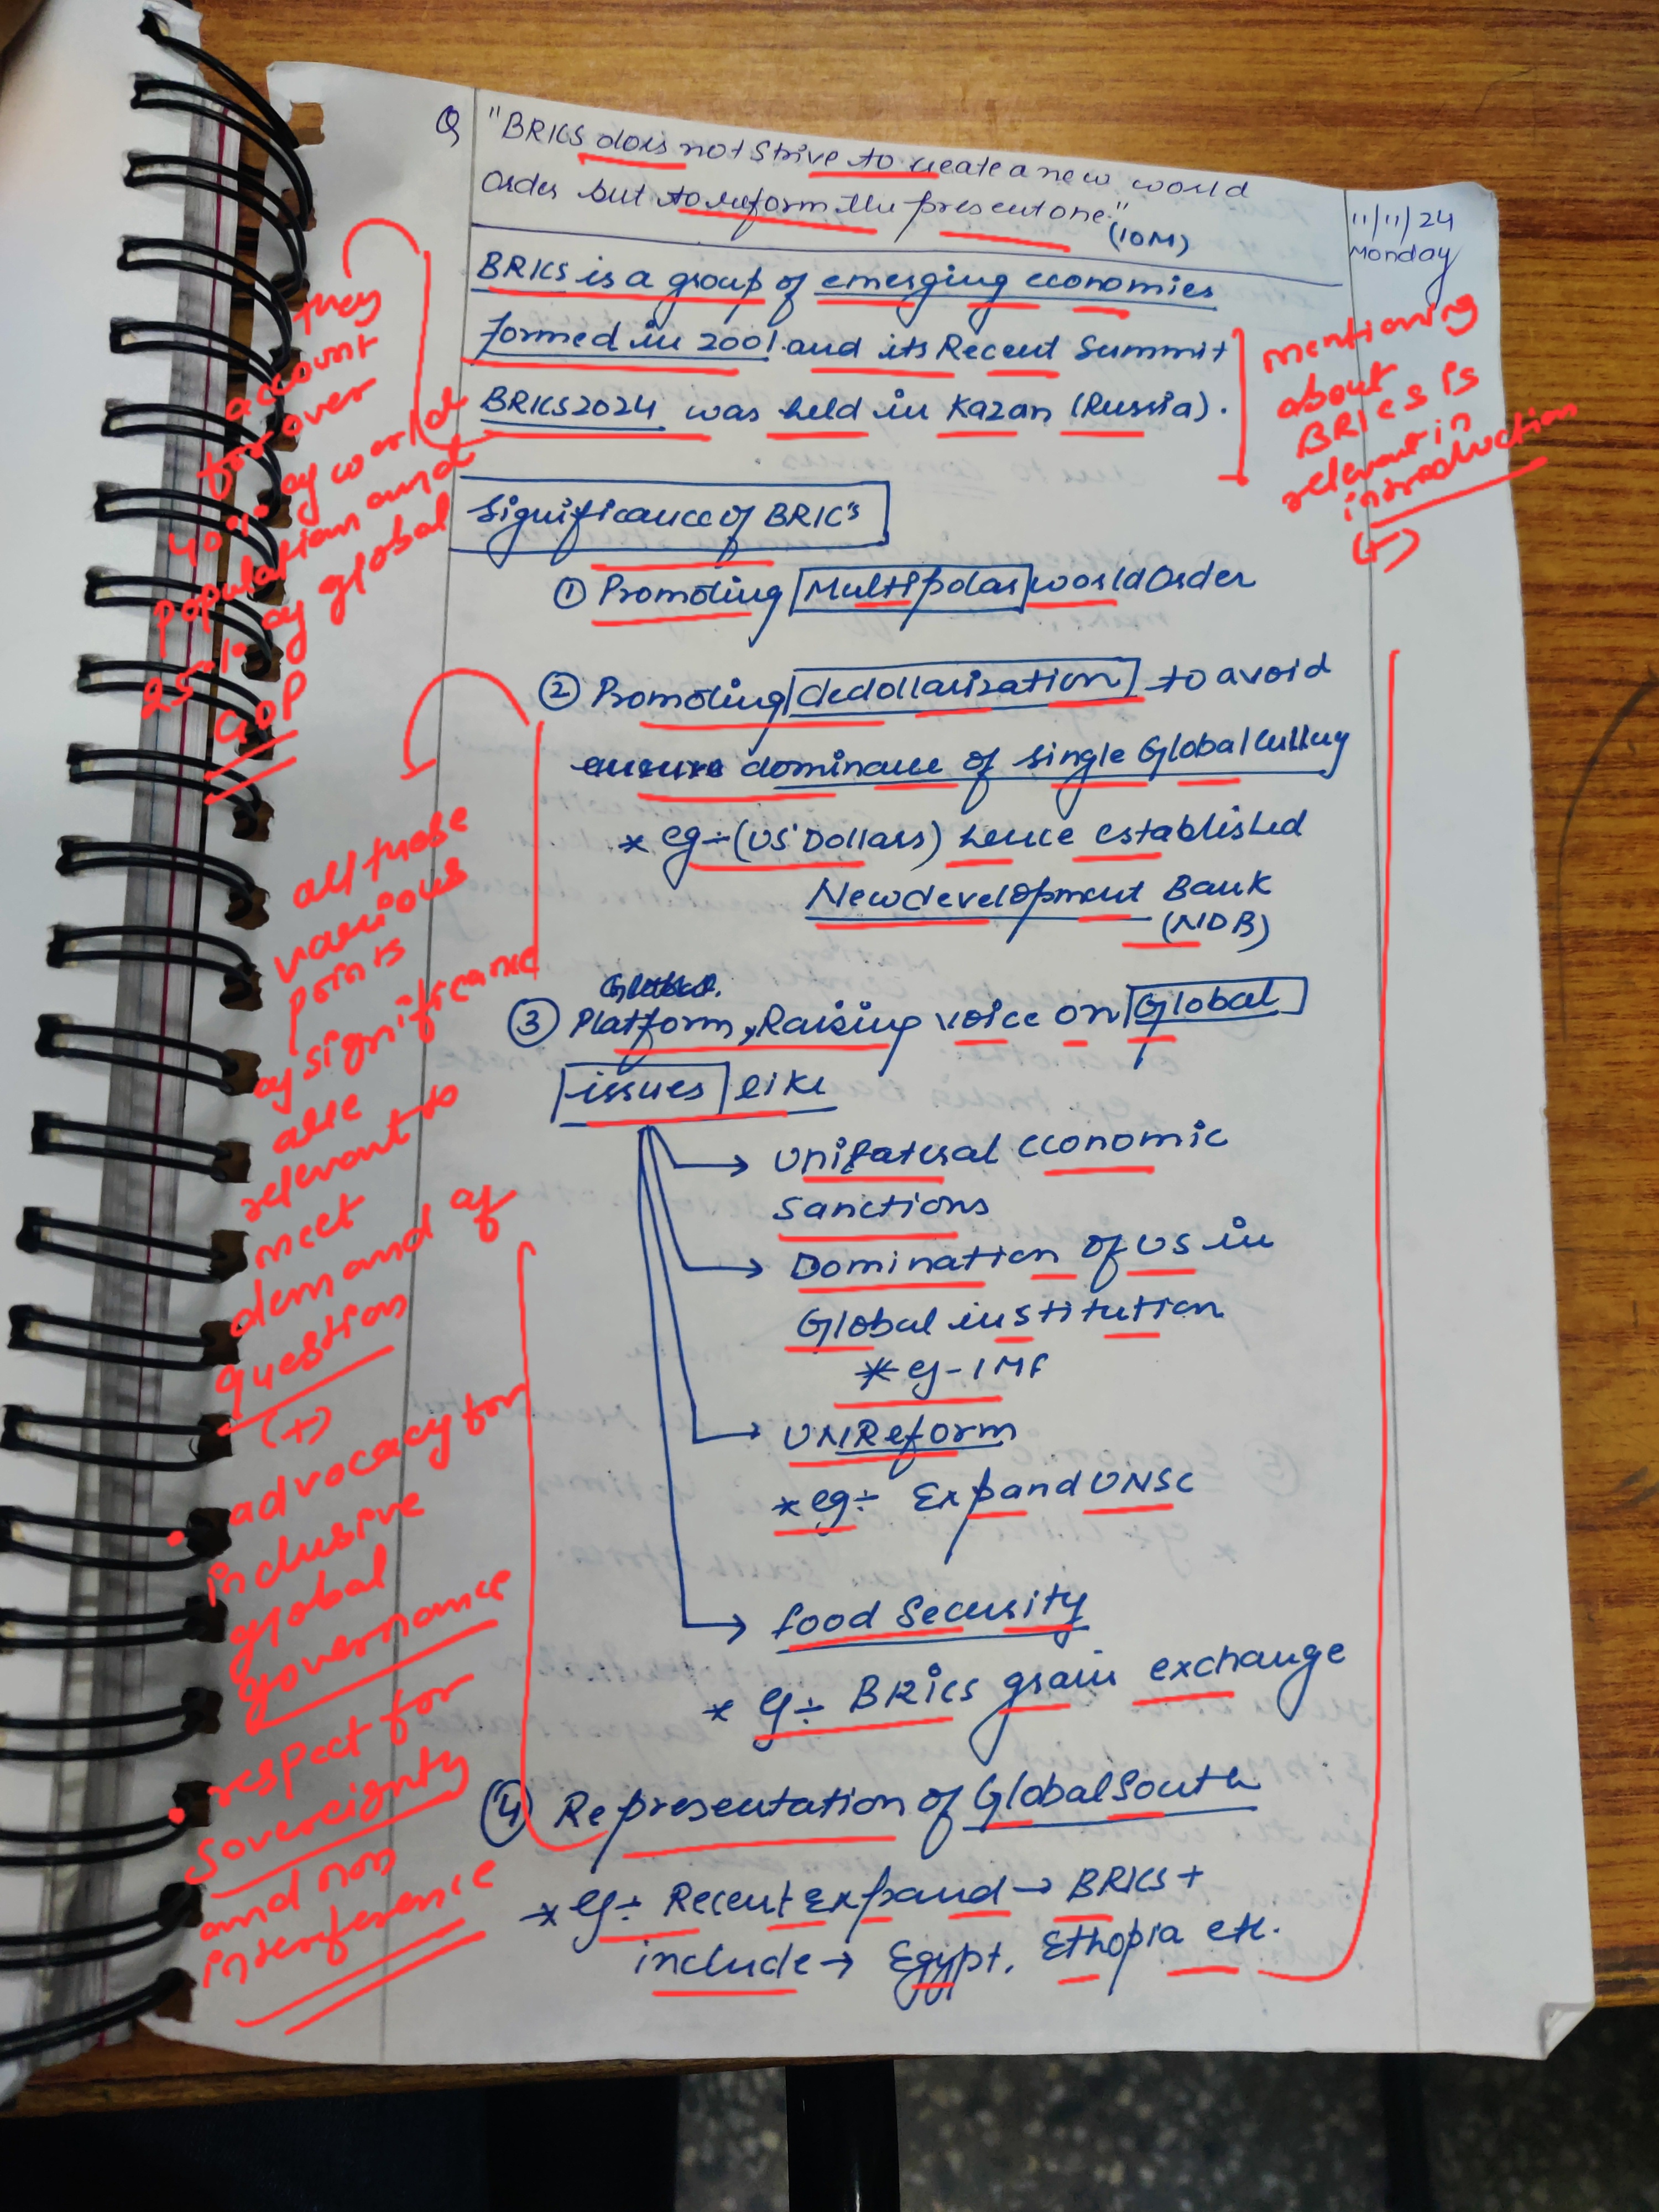 Q "BRICS does not strive to create a new world
order but to reform the present one."
(10M)
11/11/24
Monday
BRICS is a group of emerging economies
formed in 2001 and its Recent Summit
BRICS 2024 was held in Kazan (Russia).
mentioning
about
BRICS is
relevant in
introduction
(+)
they
account
for over
40% of world
population and
25% of global
GDP
Significance of BRICS
① Promoting Multipolar world order
② Promoting dedollarization to avoid
dominance of single Global
* eg÷ (US Dollars) hence established
New development Bank
(NDB)
all these
various
points
of significance
are
relevant to
meet
demand of
question
(+)
③ Platform, Raising voice on Global
issues like
→ Unilateral economic
Sanctions
→ Domination of US in
Global institution
* eg - IMF
→ UN Reform
* eg÷ Expand UNSC
→ food Security
* eg÷ BRICS grain exchange
④ Representation of Global South
* eg÷ Recent Expand → BRICS+
include → Egypt, Ethopia etc.
• advocacy for
inclusive
global
governance
• respect for
sovereignty
and non
interference